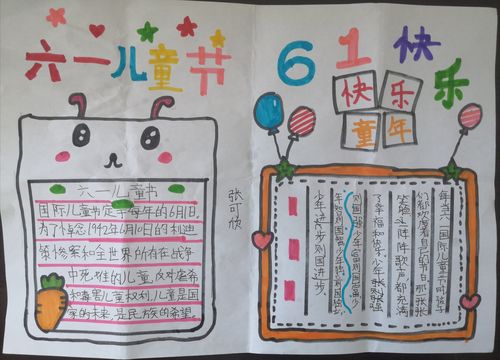 六一儿童节
61快乐
快乐
童年
六一儿童书
国际儿童书定于每年的6月1日,
为了悼念1942年6月10日的利迪
策惨案和全世界所有在战争
中死难的儿童,反对虐希
和毒害儿童权利,儿童是国
家的未来,是民族的希望。
张可欣
年年六一国际儿童节时,孩子
们都欢度着自己的节日,那张张
笑脸,阵阵歌声都充满
了幸福和快乐。少年强
少年进步则国进步。